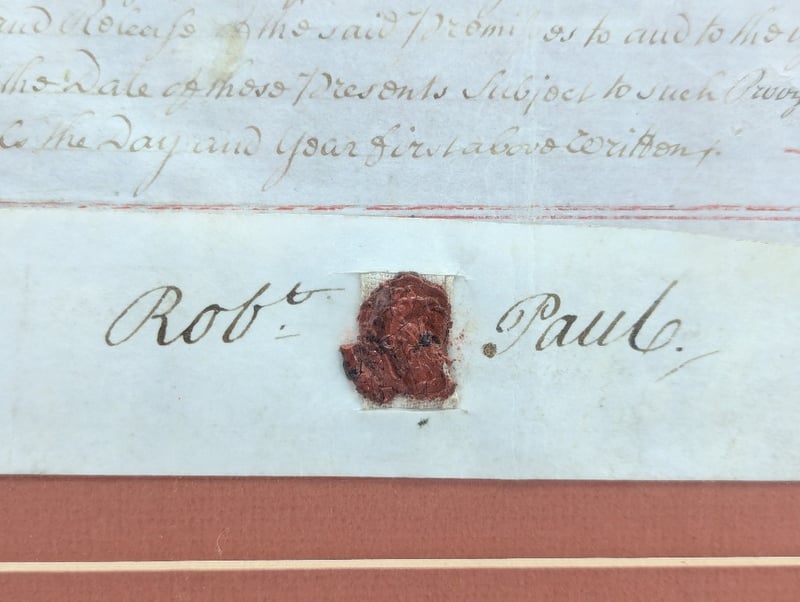 and Release of the said Premises to and to the
the Date of these Presents Subject to such
the Day and Year first above Written
Robt. Paul.